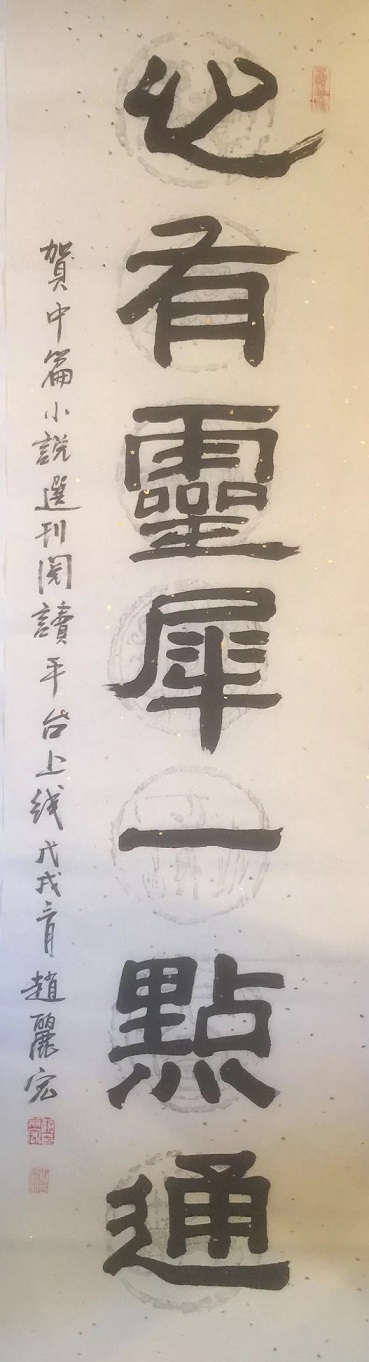 心有靈犀一點通
賀中篇小説選刊閲讀平台上线戊戌二月趙麗宏